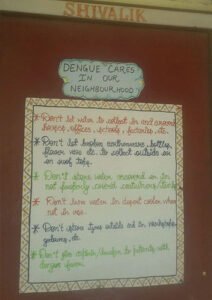 SHIVALIK
DENGUE CARES
IN OUR
NEIGHBOURHOOD
* Don't let water to collect in and around
houses, offices, schools, factories etc.
* Don't let broken bottles,
flower vase etc. to collect outside or
in roof tops.
* Don't store water in
not properly covered containers/tanks
* Don't water in desert cooler when
not in use.
* Don't store tyres outside and in
, etc.
* Don't give to patients with
dengue fever.